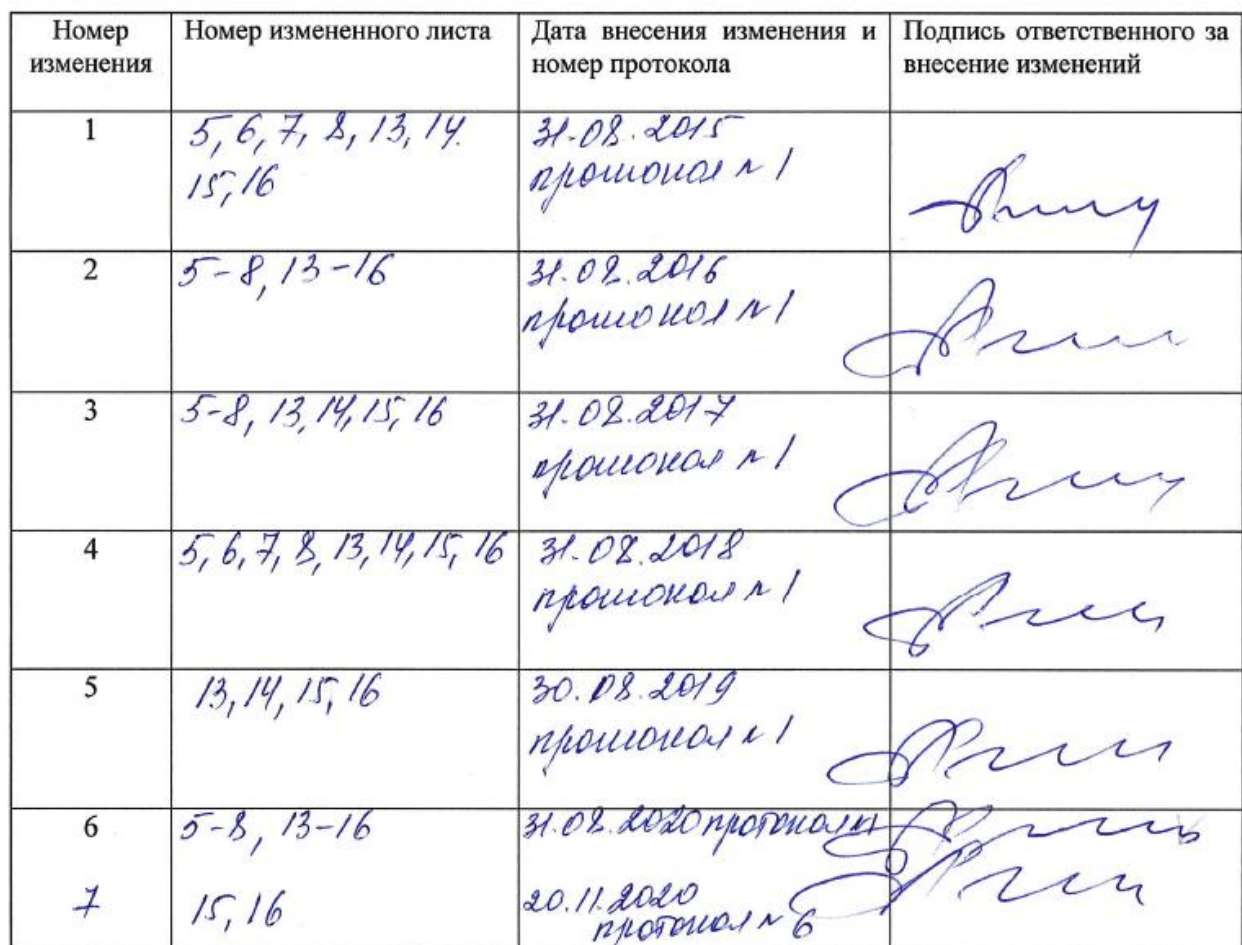 Номер изменения
Номер измененного листа
Дата внесения изменения и номер протокола
Подпись ответственного за внесение изменений
1
5, 6, 7, 8, 13, 14.
15, 16
31.08.2015
протокол n 1
2
5-8, 13-16
31.08.2016
протокол n 1
3
5-8, 13, 14, 15, 16
31.08.2017
протокол n 1
4
5, 6, 7, 8, 13, 14, 15, 16
31.08.2018
протокол n 1
5
13, 14, 15, 16
30.08.2019
протокол n 1
6
5-8, 13-16
31.08.2020 протокол n1
7
15, 16
20.11.2020
протокол n 6